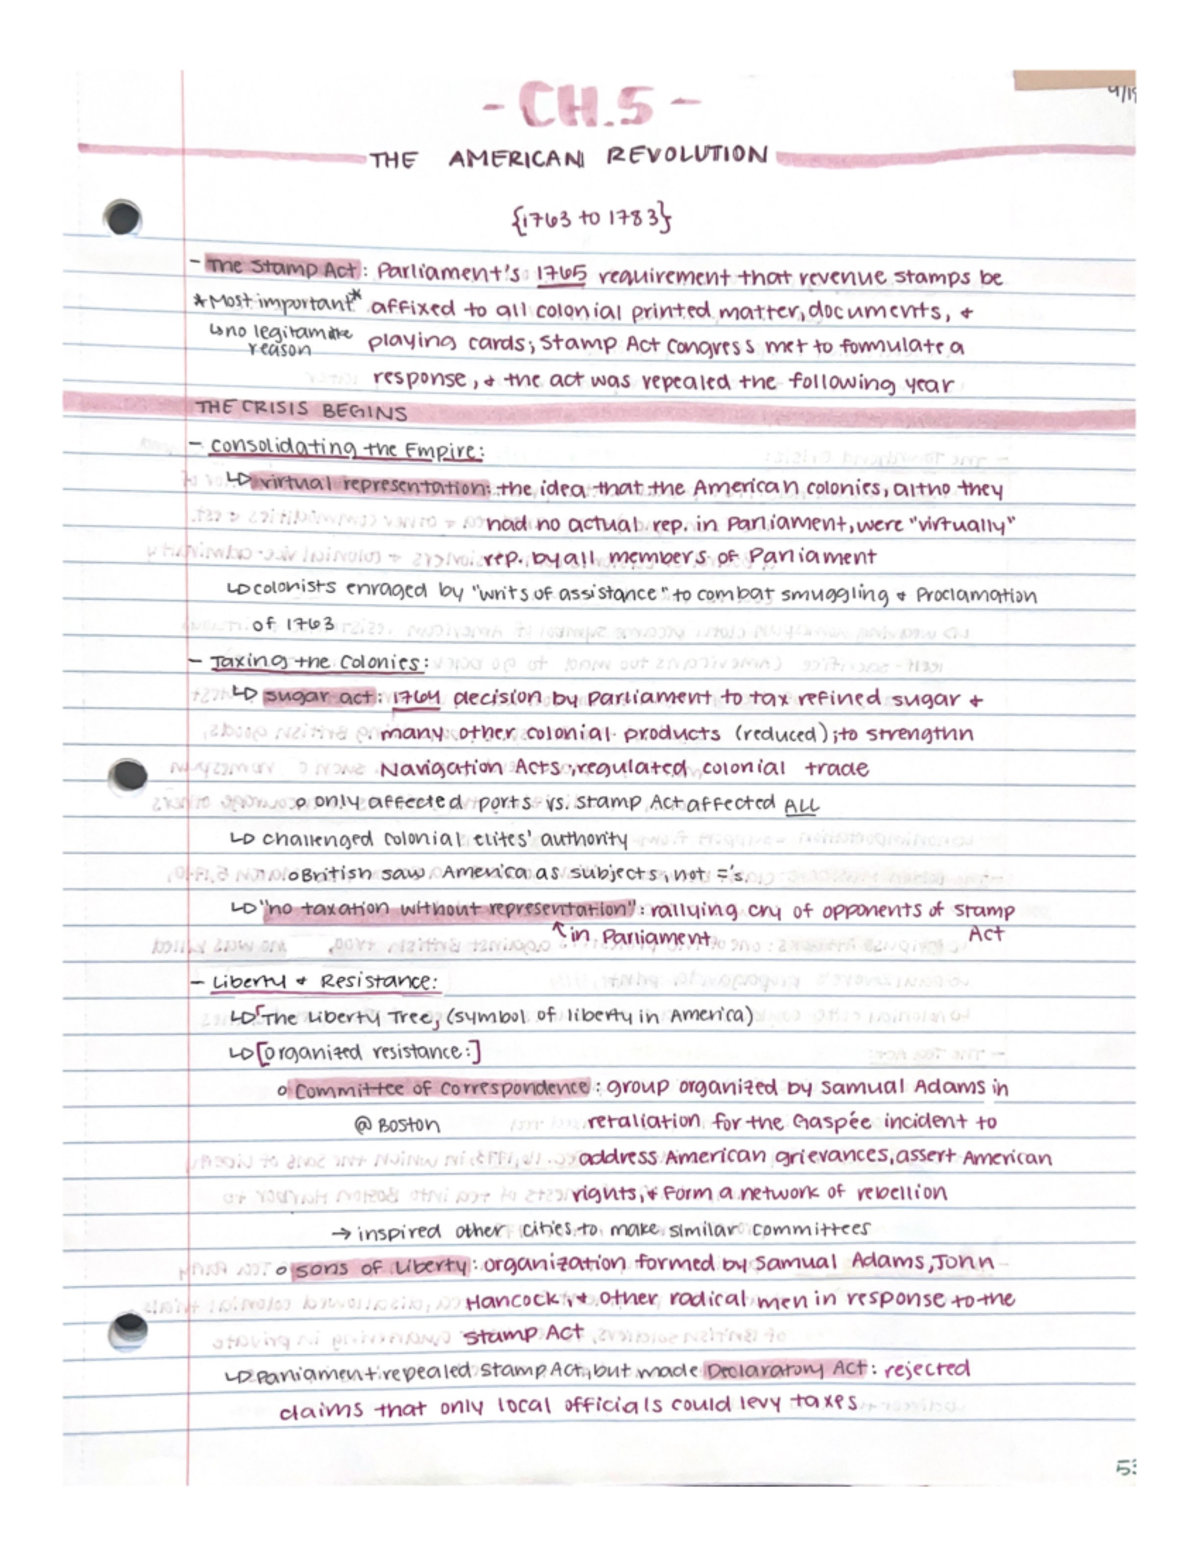 - CH.5 -
4/19
THE AMERICAN REVOLUTION
{1763 to 1783}
- The Stamp Act: Parliament's 1765 requirement that revenue stamps be
*Most important* affixed to all colonial printed matter, documents, +
↳no legitamate reason playing cards; Stamp Act Congress met to formulate a
response, + the act was repealed the following year
THE CRISIS BEGINS
- Consolidating the Empire:
↳ virtual representation: the idea that the American colonies, altho they
had no actual rep. in Parliament, were "virtually"
rep. by all members of Parliament
↳ colonists enraged by "writs of assistance" to combat smuggling + Proclamation
of 1763
- Taxing the Colonies:
↳ sugar act: 1764 decision by Parliament to tax refined sugar +
many other colonial products (reduced); to strengthn
Navigation Acts, regulated colonial trade
o only affected ports vs. Stamp Act affected ALL
↳ challenged colonial elites' authority
o British saw America as subjects, not ='s.
↳ "no taxation without representation": rallying cry of opponents of Stamp
↑in Parliament Act
- Liberty + Resistance:
↳ The Liberty Tree, (symbol of liberty in America)
↳ [organized resistance:]
o Committee of Correspondence: group organized by Samual Adams in
@ Boston retaliation for the Gaspée incident to
address American grievances, assert American
rights, + form a network of rebellion
→ inspired other cities to make similar committees
o Sons of Liberty: organization formed by Samual Adams, John
Hancock, + other radical men in response to the
Stamp Act
↳ Parliament repealed Stamp Act, but made Declaratory Act: rejected
claims that only local officials could levy taxes